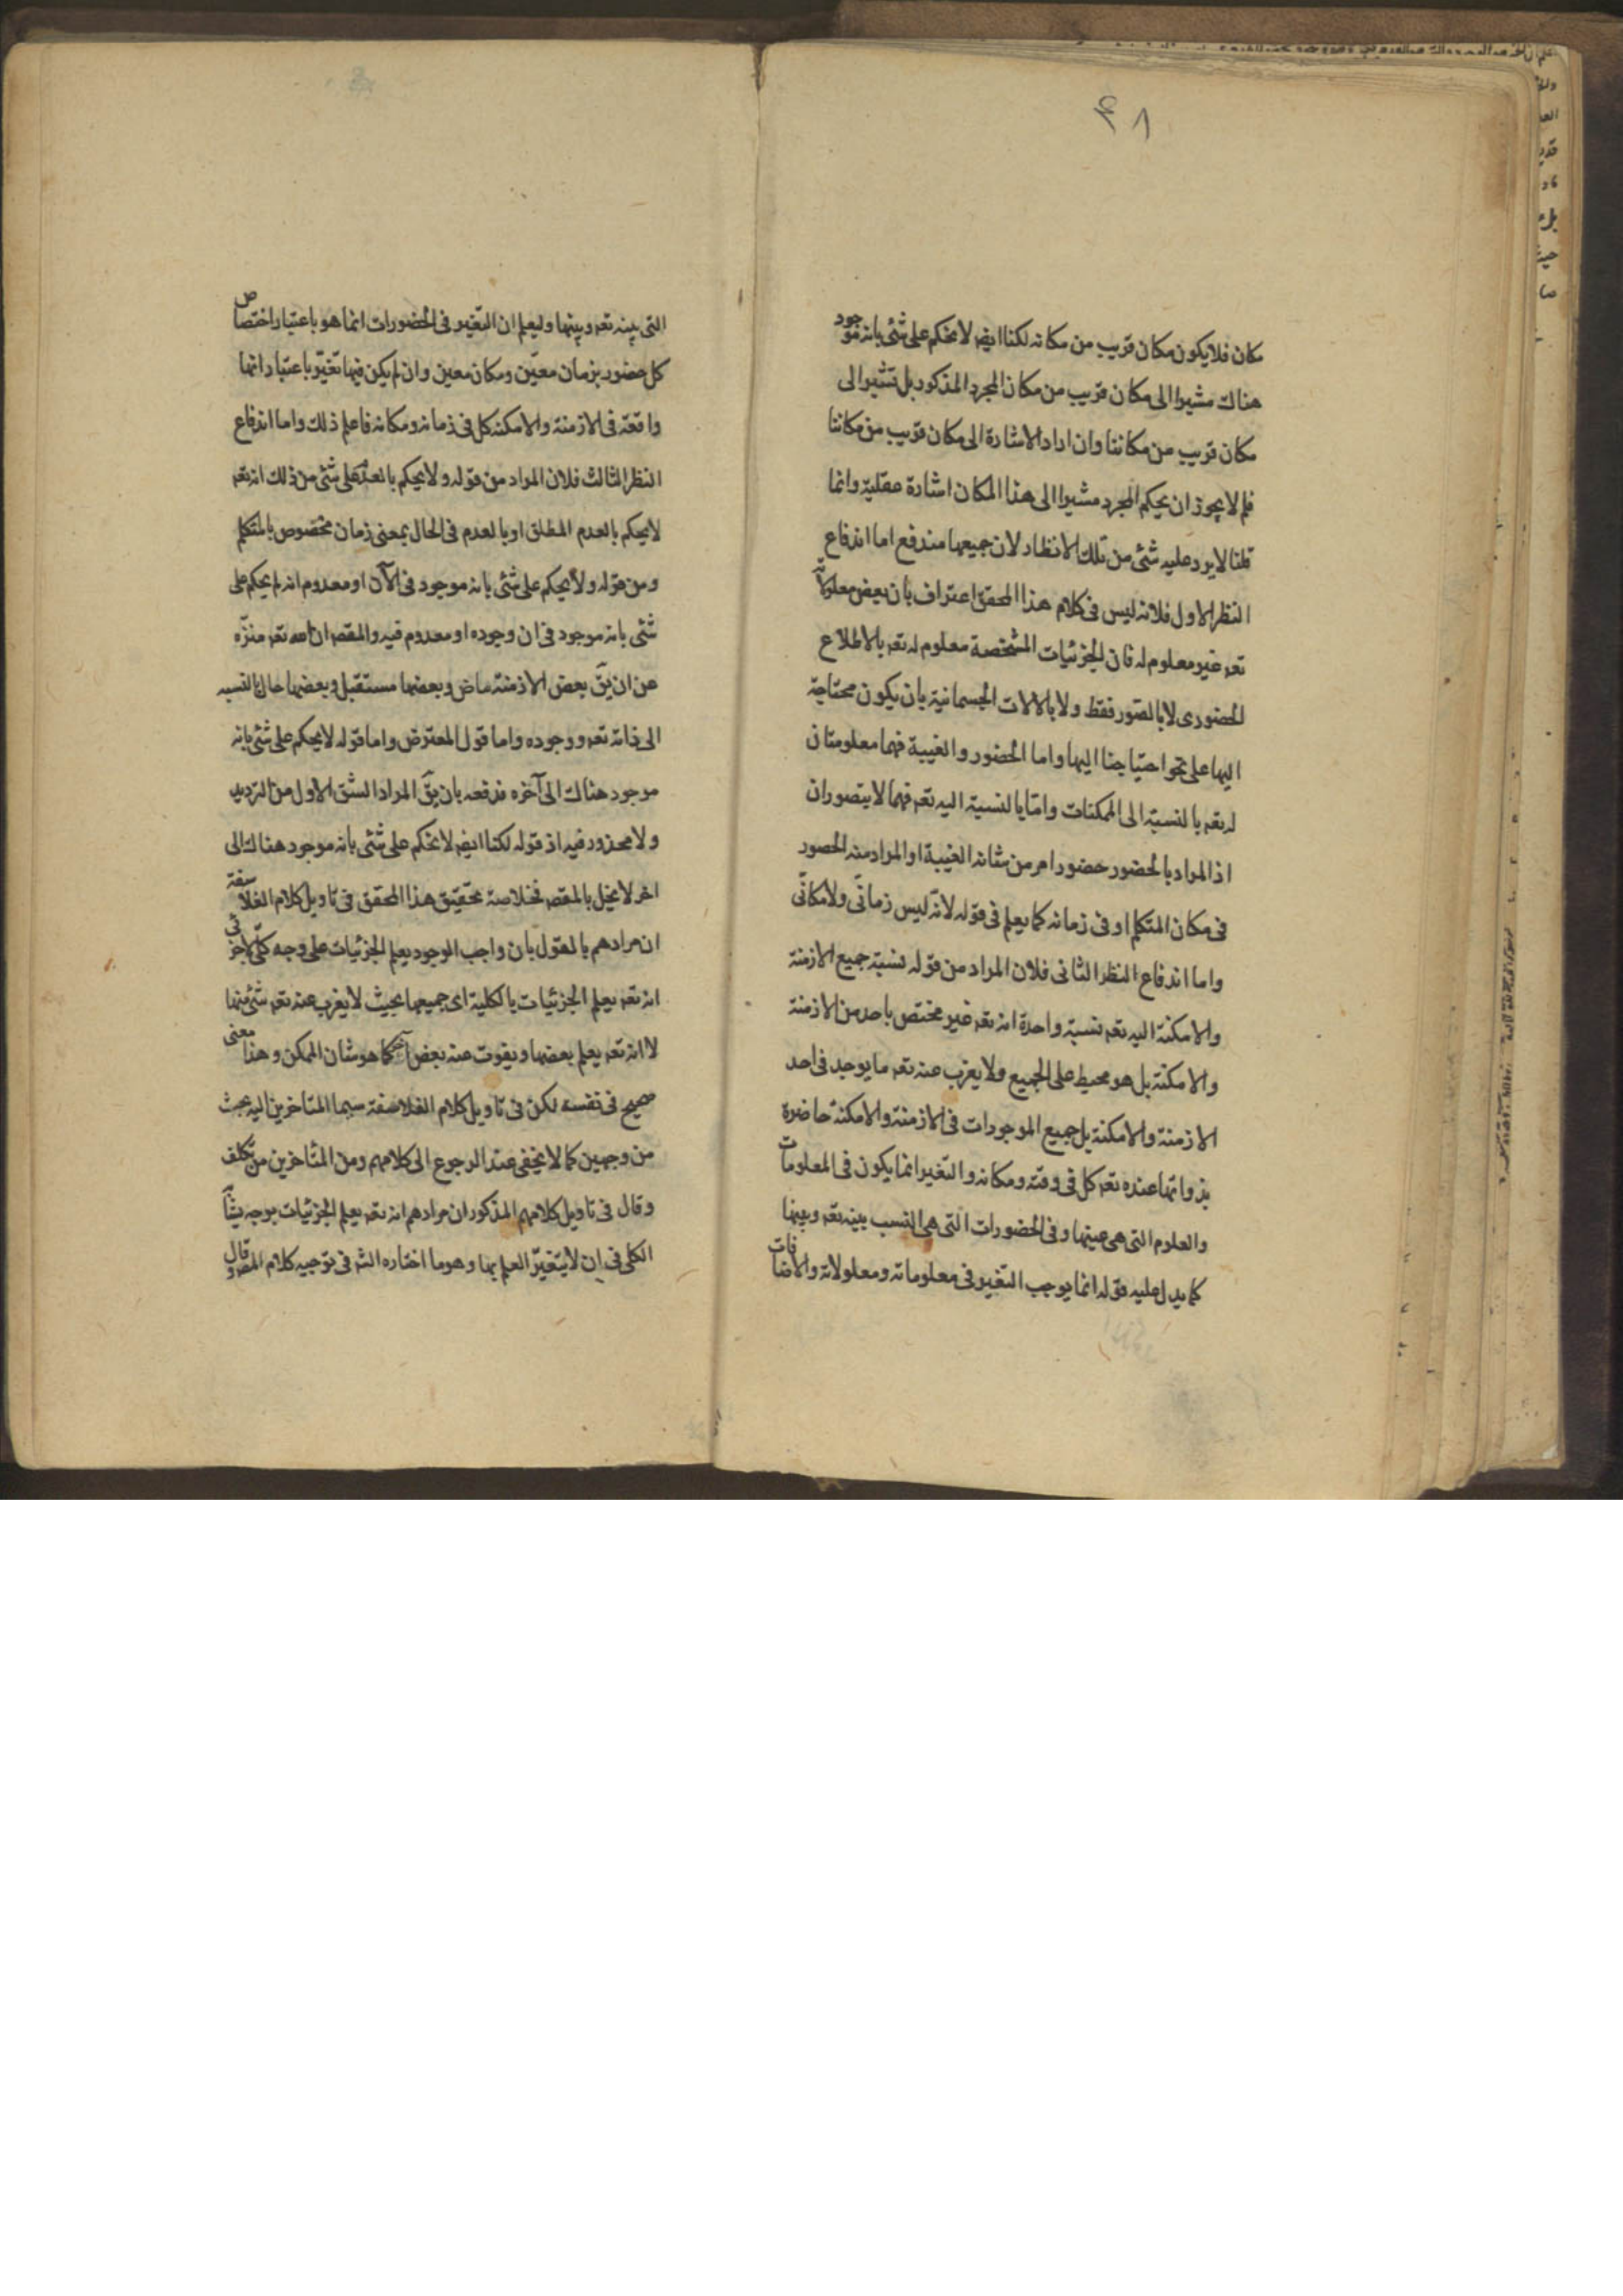 ۴۸
مكان فلا يكون مكان قريب من مكانه لكنا ايضا لا نحكم على شئ بانه موجود
هناك مشيرا الى مكان قريب من مكان المجرد المذكور بل نشير الى
مكان قريب من مكاننا وان اراد الاشارة الى مكان قريب من مكاننا
فلم لا يجوز ان يحكم المجرد مشيرا الى هذا المكان اشارة عقلية وانما
قلنا لا يرد عليه شئ من تلك الانظار لان جميعها مندفع اما اندفاع
النظر الاول فلانه ليس فى كلام هذا المحقق اعتراف بان بعض معلولاته
تعه غير معلوم له فان الجزئيات المشخصة معلوم له تعه بالاطلاع
الحضورى لا بالصور فقط ولا بالالات الجسمانية بان يكون محتاجة
اليها على نحو احتياجنا اليها واما الحضور والغيبة فهما معلومتان
له تعه بالنسبة الى الممكنات واما بالنسبة اليه تعه فهما لا يتصوران
اذ المراد بالحضور حضور امر من شانه الغيبة او المراد منه الحضور
فى مكان المتكلم او فى زمانه كما يعلم فى قوله لانه ليس زمانى ولا مكانى
واما اندفاع النظر الثانى فلان المراد من قوله نسبة جميع الازمنة
والامكنة اليه تعه نسبة واحدة انه تعه غير مختص باحد من الازمنة
والامكنة بل هو محيط على الجميع ولا يغرب عنه تعه ما يوجد فى احد
الازمنة والامكنة بل جميع الموجودات فى الازمنة والامكنة حاضرة
بذواتها عنده تعه كل فى وقته ومكانه والتغير انما يكون فى المعلومات
والعلوم التى هى عينها وفى الحضورات التى هى النسب بينه تعه وبينها
كما يدل عليه قوله انما يوجب التغير فى معلوماته ومعلولاته والاضافات
التى بينه تعه وبينها وليعلم ان التغير فى الحضورات انما هو باعتبار اختصاص
كل حضور بزمان معيّن ومكان معين وان لم يكن فيها تغيّر باعتبار انها
واقعة فى الازمنة والامكنة كل فى زمانه ومكانه فاعلم ذلك واما اندفاع
النظر الثالث فلان المراد من قوله ولا يحكم بالعدم على شئ من ذلك انه تعه
لا يحكم بالعدم المطلق او بالعدم فى الحال بمعنى زمان مخصوص بالمتكلم
ومن قوله ولا يحكم على شئ بانه موجود فى الآن او معدوم انه لم يحكم على
شئ بانه موجود فى ان وجوده او معدوم فيه والمقصه ان الله تعه منزّه
عن ان يقّ بعض الازمنة ماض وبعضها مستقبل وبعضها حال بالنسبه
الى ذاته تعه ووجوده واما قول المعترض واما قوله لا يحكم على شئ بانه
موجود هناك الى آخره فدفعه بان يقّ المراد الشق الاول من الترديد
ولا محذور فيه اذ قوله لكنا ايضا لا نحكم على شئ بانه موجود هناك الى
اخره لا يخل بالمقصه فخلاصة تحقيق هذا المحقق فى تاويل كلام الفلاسفة
ان مرادهم بالقول بان واجب الوجود يعلم الجزئيات على وجه كلّى لا جزئى
انه تعه يعلم الجزئيات بالكلية اى جميعها بحيث لا يغرب عنه تعه شئ منها
لا انه تعه يعلم بعضها ويفوت عنه بعض آخر كما هو شان الممكن وهذا معنى
صحيح فى نفسه لكن فى تاويل كلام الفلاسفة سيما المتاخرين اليه بحث
من وجهين كما لا يخفى عند الرجوع الى كلامهم ومن المتاخرين من تكلف
وقال فى تاويل كلامهم المذكور ان مرادهم انه تعه يعلم الجزئيات بوجه يشابه
الكلى فى ان لا يتغيّر العلم بها وهو ما اختاره الشه فى توجيه كلام المصه وقال